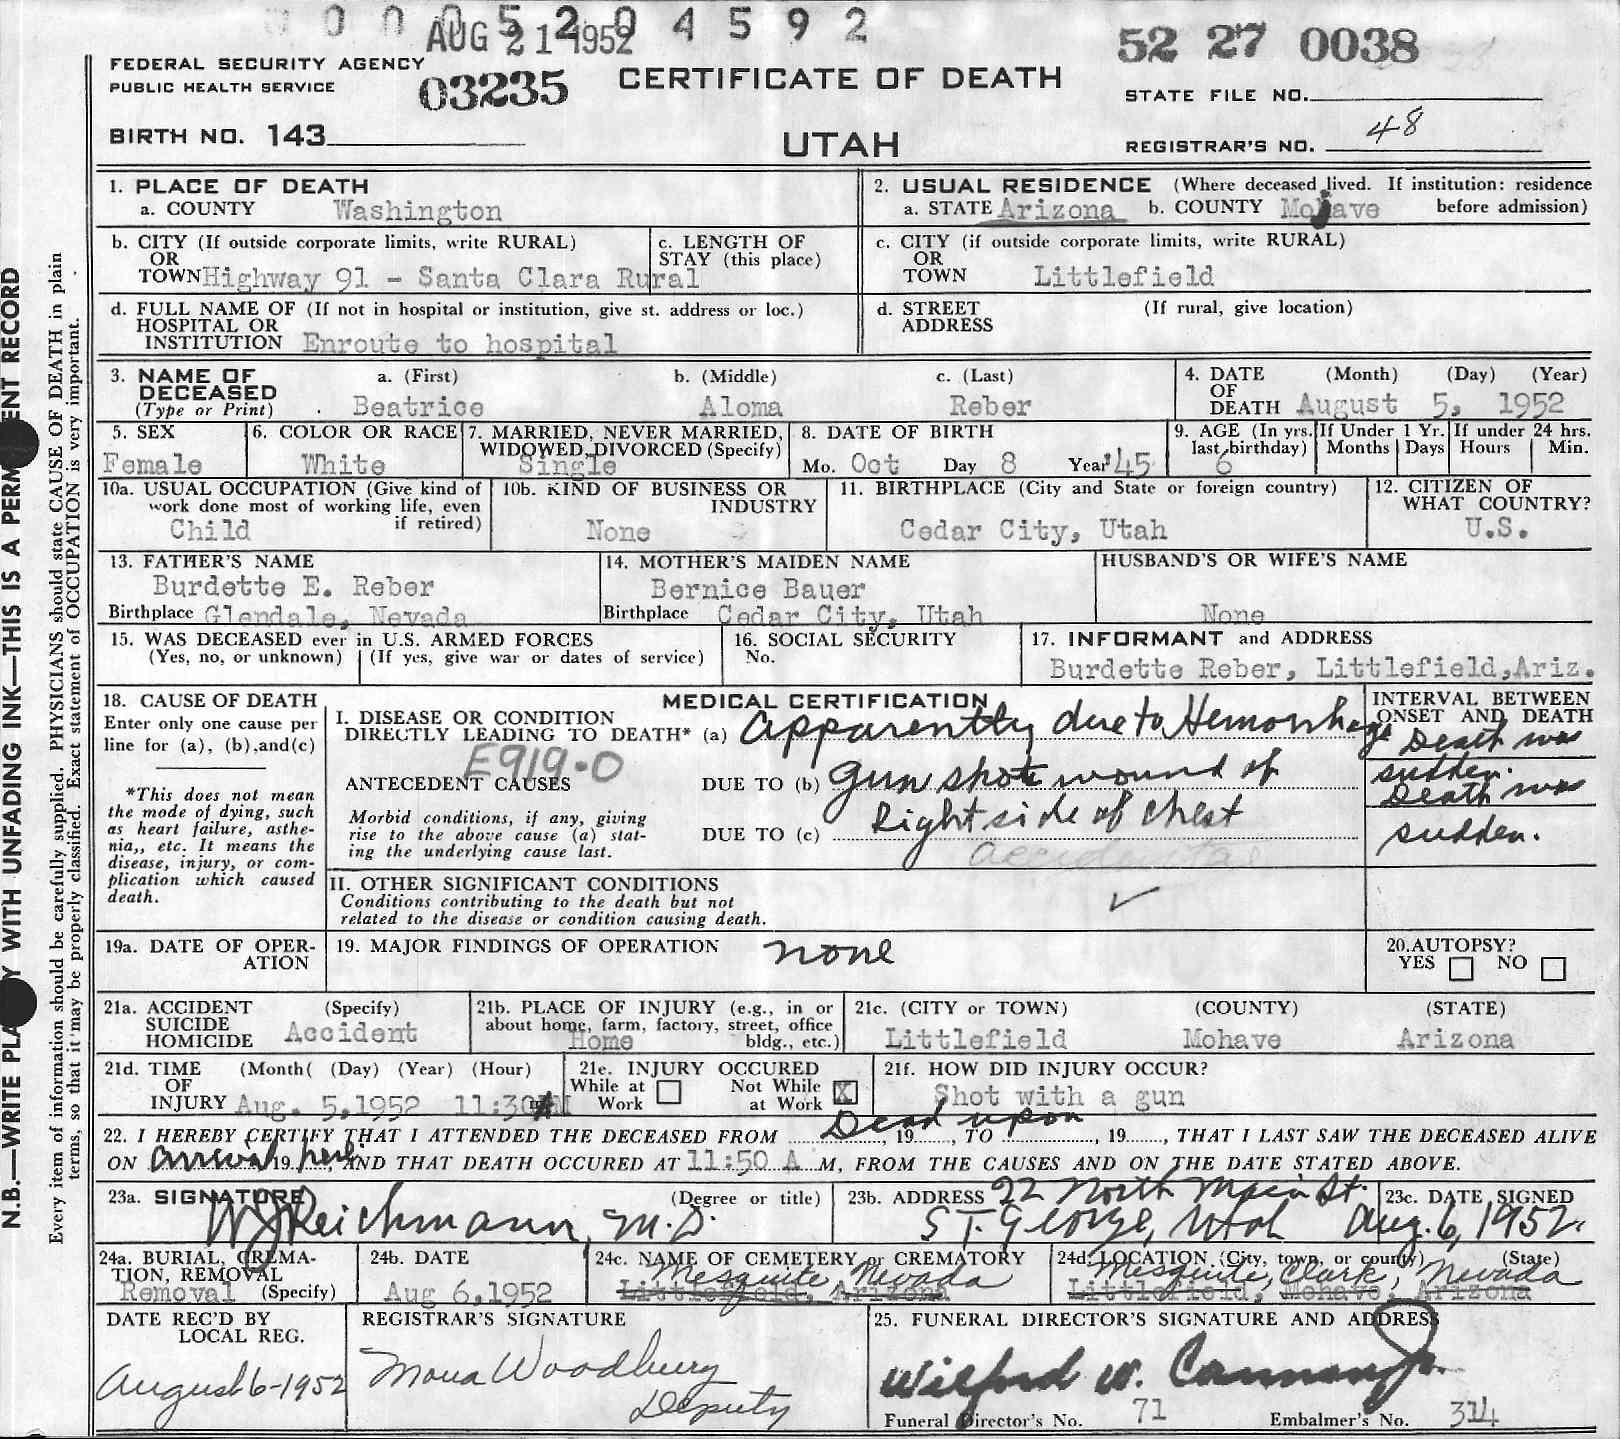 0 0 0 5 2 0 4 5 9 2
AUG 21 1952
52 27 0038
FEDERAL SECURITY AGENCY
PUBLIC HEALTH SERVICE
03235
CERTIFICATE OF DEATH
STATE FILE NO.
BIRTH NO. 143
UTAH
REGISTRAR'S NO. 48
N.B.—WRITE PLA Y WITH UNFADING INK—THIS IS A PERM ENT RECORD
Every item of information should be carefully supplied. PHYSICIANS should state CAUSE OF DEATH in plain
terms, so that it may be properly classified. Exact statement of OCCUPATION is very important.
1. PLACE OF DEATH
a. COUNTY Washington
2. USUAL RESIDENCE (Where deceased lived. If institution: residence
a. STATE Arizona b. COUNTY Mohave before admission)
b. CITY (If outside corporate limits, write RURAL)
OR
TOWN Highway 91 - Santa Clara Rural
c. LENGTH OF
STAY (this place)
c. CITY (if outside corporate limits, write RURAL)
OR
TOWN Littlefield
d. FULL NAME OF (If not in hospital or institution, give st. address or loc.)
HOSPITAL OR
INSTITUTION Enroute to hospital
d. STREET (If rural, give location)
ADDRESS
3. NAME OF DECEASED a. (First) b. (Middle) c. (Last)
(Type or Print) Beatrice Aloma Reber
4. DATE (Month) (Day) (Year)
OF
DEATH August 5, 1952
5. SEX
Female
6. COLOR OR RACE
White
7. MARRIED, NEVER MARRIED,
WIDOWED, DIVORCED (Specify)
Single
8. DATE OF BIRTH
Mo. Oct Day 8 Year '45
9. AGE (In yrs. last birthday)
6
If Under 1 Yr.
Months Days
If under 24 hrs.
Hours Min.
10a. USUAL OCCUPATION (Give kind of
work done most of working life, even
if retired)
Child
10b. KIND OF BUSINESS OR
INDUSTRY
None
11. BIRTHPLACE (City and State or foreign country)
Cedar City, Utah
12. CITIZEN OF
WHAT COUNTRY?
U.S.
13. FATHER'S NAME
Burdette E. Reber
Birthplace Glendale, Nevada
14. MOTHER'S MAIDEN NAME
Bernice Bauer
Birthplace Cedar City, Utah
HUSBAND'S OR WIFE'S NAME
None
15. WAS DECEASED ever in U.S. ARMED FORCES
(Yes, no, or unknown) (If yes, give war or dates of service)
16. SOCIAL SECURITY
No.
17. INFORMANT and ADDRESS
Burdette Reber, Littlefield, Ariz.
18. CAUSE OF DEATH
Enter only one cause per
line for (a), (b), and (c)
*This does not mean
the mode of dying, such
as heart failure, asthe-
nia,, etc. It means the
disease, injury, or com-
plication which caused
death.
MEDICAL CERTIFICATION
I. DISEASE OR CONDITION
DIRECTLY LEADING TO DEATH* (a) apparently due to Hemorrhage
E919.0
ANTECEDENT CAUSES
DUE TO (b) gun shot wound of
Morbid conditions, if any, giving
rise to the above cause (a) stat-
ing the underlying cause last.
Right side of chest
DUE TO (c)
INTERVAL BETWEEN
ONSET AND DEATH
Death was
sudden.
Death was
sudden.
II. OTHER SIGNIFICANT CONDITIONS
Conditions contributing to the death but not
related to the disease or condition causing death.
19a. DATE OF OPER-
ATION
19. MAJOR FINDINGS OF OPERATION none
20. AUTOPSY?
YES NO
21a. ACCIDENT (Specify)
SUICIDE
HOMICIDE Accident
21b. PLACE OF INJURY (e.g., in or
about home, farm, factory, street, office
bldg., etc.)
Home
21c. (CITY or TOWN) (COUNTY) (STATE)
Littlefield Mohave Arizona
21d. TIME (Month( (Day) (Year) (Hour)
OF
INJURY Aug. 5, 1952 11:30 AM
21e. INJURY OCCURED
While at Work Not While at Work X
21f. HOW DID INJURY OCCUR?
Shot with a gun
22. I HEREBY CERTIFY THAT I ATTENDED THE DECEASED FROM Dead upon, 19......, TO ............, 19......, THAT I LAST SAW THE DECEASED ALIVE
ON arrival here 19......, AND THAT DEATH OCCURED AT 11:50 A M, FROM THE CAUSES AND ON THE DATE STATED ABOVE.
23a. SIGNATURE (Degree or title)
W J Reichmann, M.D.
23b. ADDRESS 22 North Main St.
St. George, Utah
23c. DATE SIGNED
Aug. 6, 1952.
24a. BURIAL, CREMA-
TION, REMOVAL
Removal (Specify)
24b. DATE
Aug 6, 1952
24c. NAME OF CEMETERY or CREMATORY
Mesquite, Nevada
Littlefield, Arizona
24d. LOCATION (City, town, or county) (State)
Mesquite, Clark, Nevada
Littlefield, Mohave, Arizona
DATE REC'D BY
LOCAL REG.
August 6-1952
REGISTRAR'S SIGNATURE
Mona Woodbury
Deputy
25. FUNERAL DIRECTOR'S SIGNATURE AND ADDRESS
Wilford W. Cannon Jr.
Funeral Director's No. 71 Embalmer's No. 314